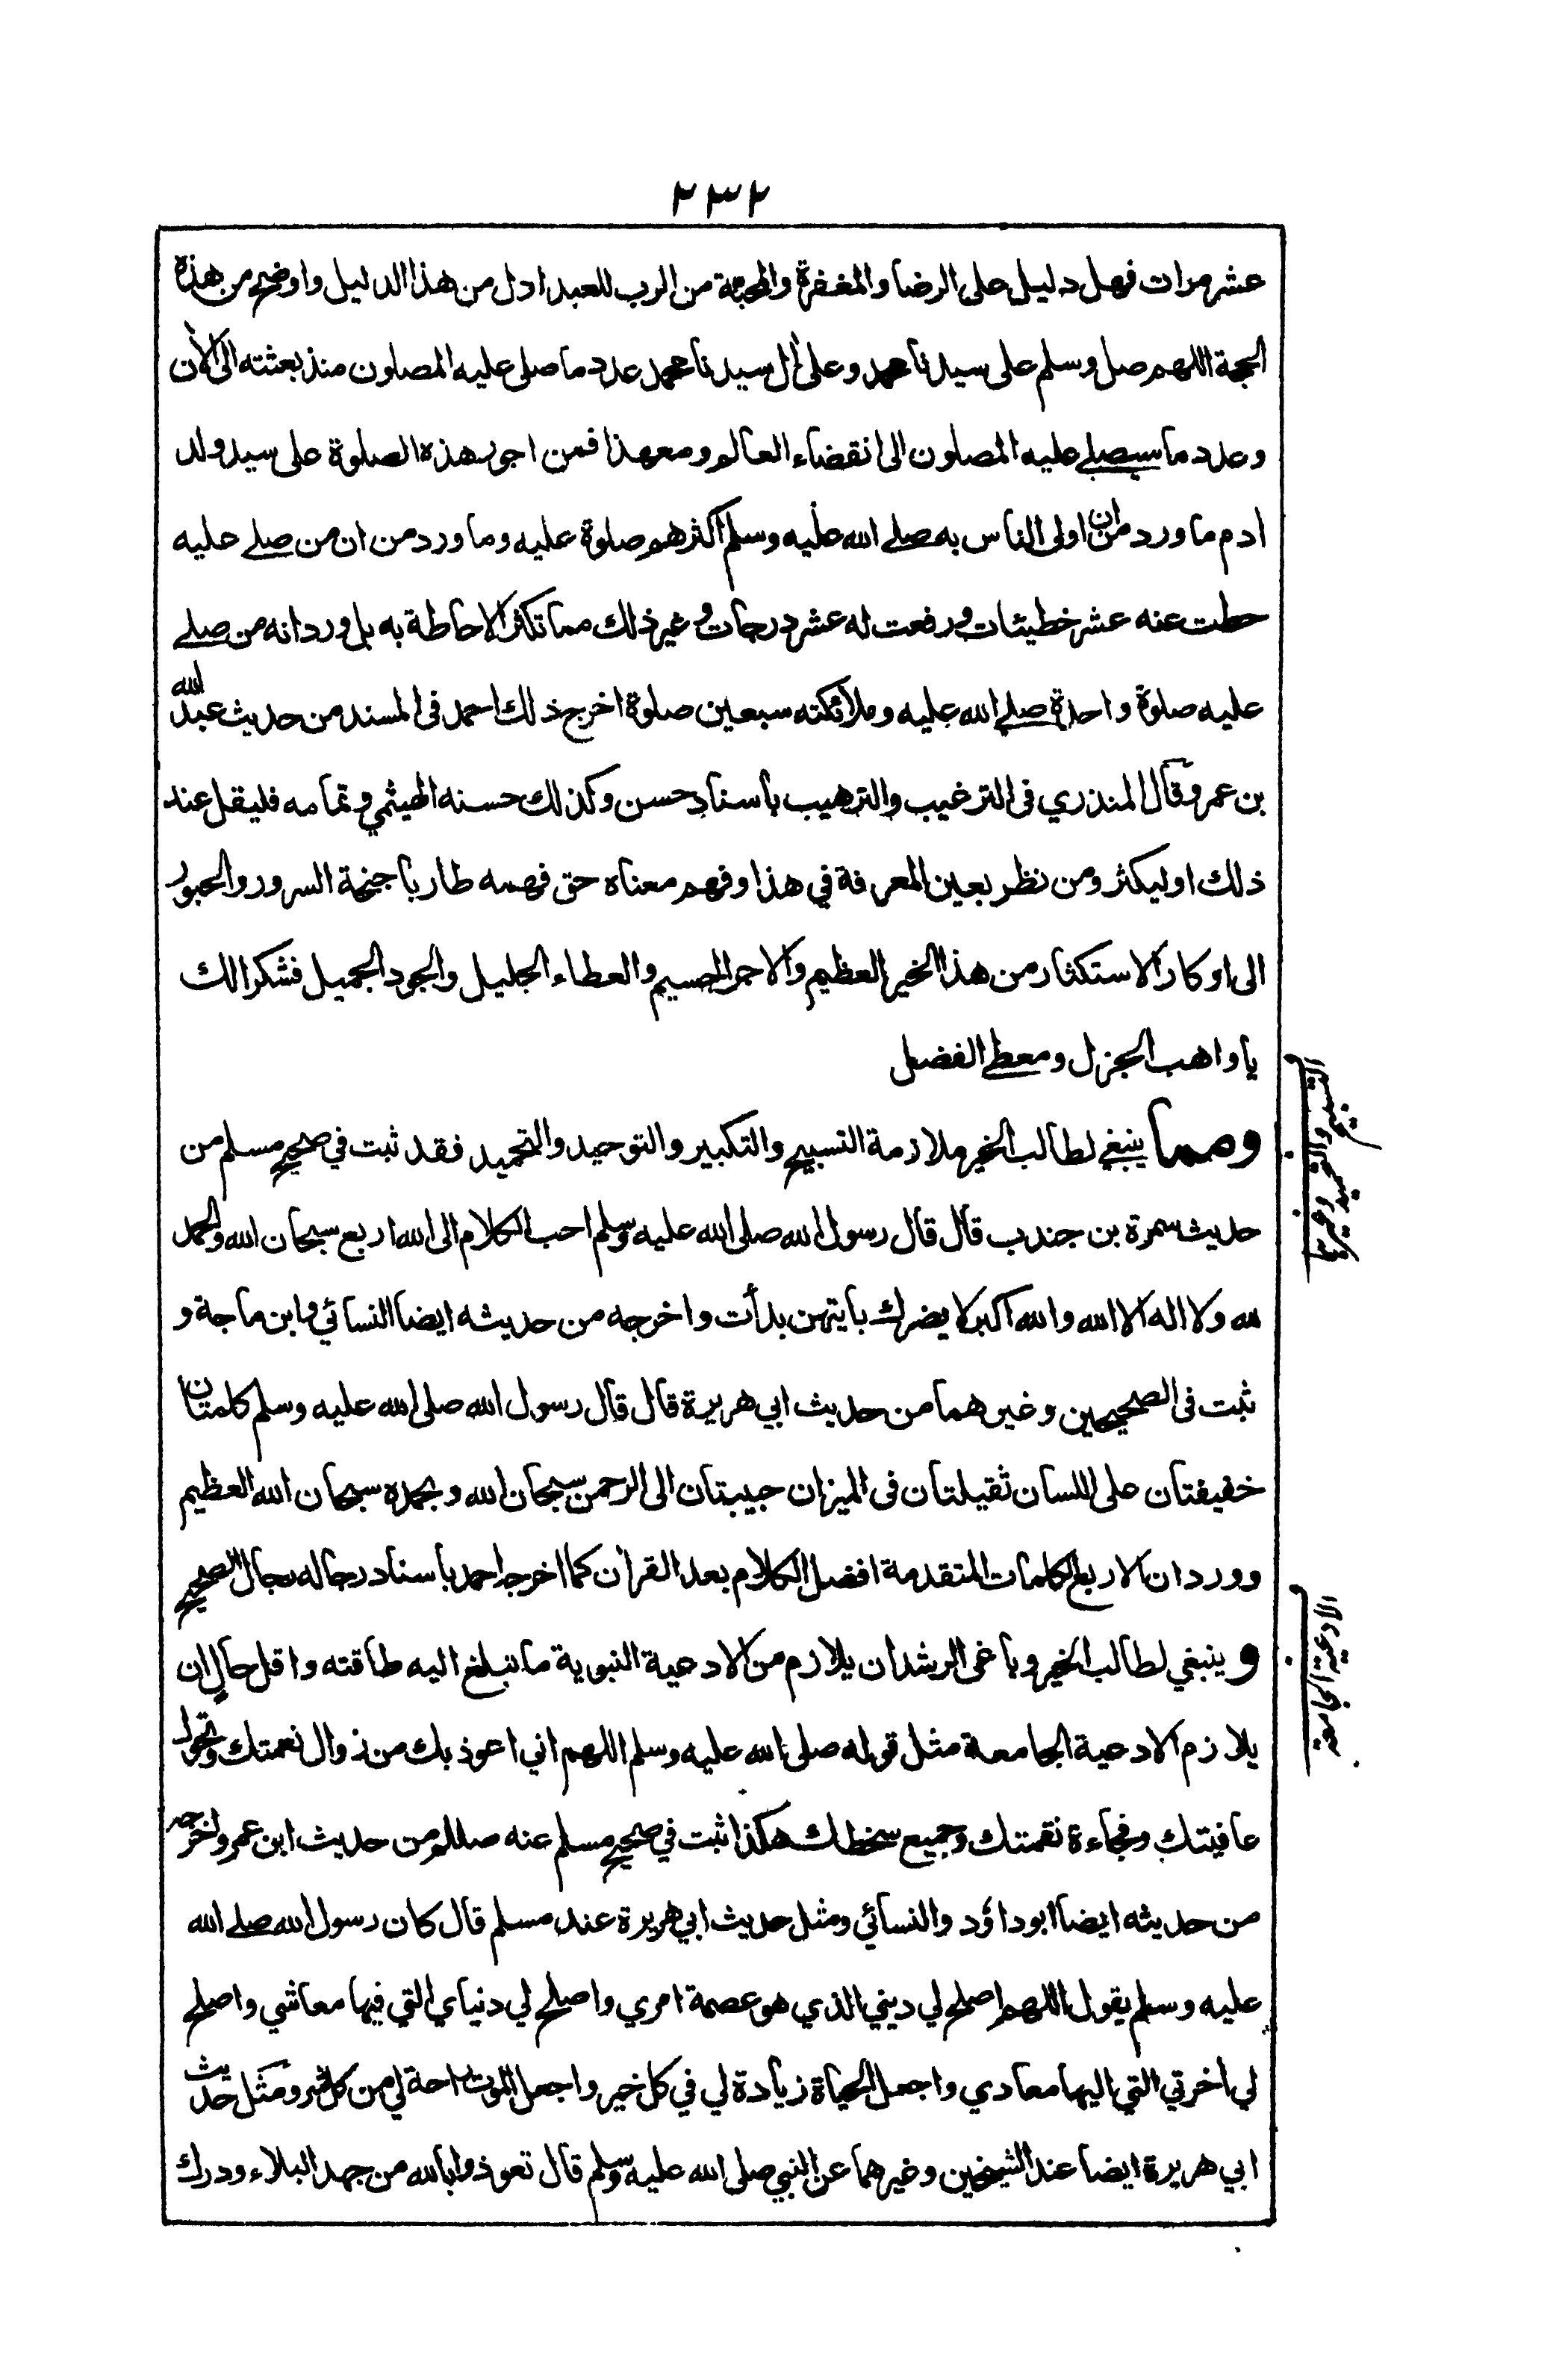 ٢٣٢
عشر مرات فهل دليل على الرضا والمغفرة والمحبة من الرب للعبد ادل من هذا الدليل واوضح من هذه
الحجة اللهم صل وسلم على سيدنا محمد وعلى أل سيدنا محمد عدد ما صلى عليه المصلون منذ بعثته الى الأن
وعدد ما سيصلي عليه المصلون الى انقضاء العالم ومع هذا فمن اجور هذه الصلوة على سيد ولد
ادم ما ورد من ان اولى الناس به صلى الله عليه وسلم اكثرهم صلوة عليه وما ورد من ان من صلى عليه
حطت عنه عشر خطيئات ورفعت له عشر درجات وغير ذلك مما تكثر الاحاطة به بل ورد انه من صلى
عليه صلوة واحدة صلى الله عليه وملائكته سبعين صلوة اخرج ذلك احمد فى المسند من حديث عبد الله
بن عمرو قال المنذري فى الترغيب والترهيب باسناد حسن وكذلك حسنه الهيثمي وتمامه فليقل عند
ذلك او ليكثر ومن نظر بعين المعرفة في هذا وفهم معناه حق فهمه طار باجنحة السرور والحبور
الى اوكار الاستكثار من هذا الخير العظيم والاجر الجسيم والعطاء الجليل والجود الجميل فشكرا لك
يا واهب الجزل ومعطي الفضل
ومما ينبغي لطالب الخير ملازمة التسبيح والتكبير والتوحيد والتحميد فقد ثبت في صحيح مسلم من
حديث سمرة بن جندب قال قال رسول الله صلى الله عليه وسلم احب الكلام الى الله اربع سبحان الله والحمد
لله ولا اله الا الله والله اكبر لا يضرك بايتهن بدأت واخرجه من حديثه ايضا النسائي وابن ماجة و
ثبت فى الصحيحين وغيرهما من حديث ابي هريرة قال قال رسول الله صلى الله عليه وسلم كلمتان
خفيفتان على اللسان ثقيلتان فى الميزان حبيبتان الى الرحمن سبحان الله وبحمده سبحان الله العظيم
وورد ان الاربع الكلمات المتقدمة افضل الكلام بعد القرأن كما اخرجه احمد باسناد رجاله رجال الصحيح
وينبغي لطالب الخير وباغى الرشد ان يلازم من الادعية النبوية ما تبلغ اليه طاقته واقل حال ان
يلازم الادعية الجامعة مثل قوله صلى الله عليه وسلم اللهم اني اعوذ بك من زوال نعمتك وتحول
عافيتك وفجاءة نقمتك وجميع سخطك هكذا ثبت في صحيح مسلم عنه صللم من حديث ابن عمر واخرجه
من حديثه ايضا ابو داؤد والنسائي ومثل حديث ابي هريرة عند مسلم قال كان رسول الله صلى الله
عليه وسلم يقول اللهم اصلح لي ديني الذي هو عصمة امري واصلح لي دنياي التي فيها معاشي واصلح
لي أخرتي التي اليها معادي واجعل الحياة زيادة لي في كل خير واجعل الموت راحة لي من كل شر ومثل حديث
ابي هريرة ايضا عند الشيخين وغيرهما عن النبي صلى الله عليه وسلم قال تعوذوا بالله من جهد البلاء ودرك
الادعية الجامعة